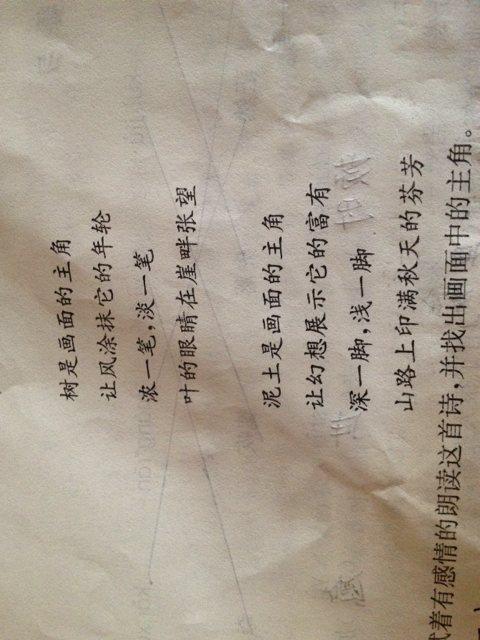 树是画面的主角
让风涂抹它的年轮
浓一笔,淡一笔
叶的眼睛在崖畔张望
泥土是画面的主角
让幻想展示它的富有
深一脚,浅一脚
山路上印满秋天的芬芳
着有感情的朗读这首诗,并找出画面中的主角。